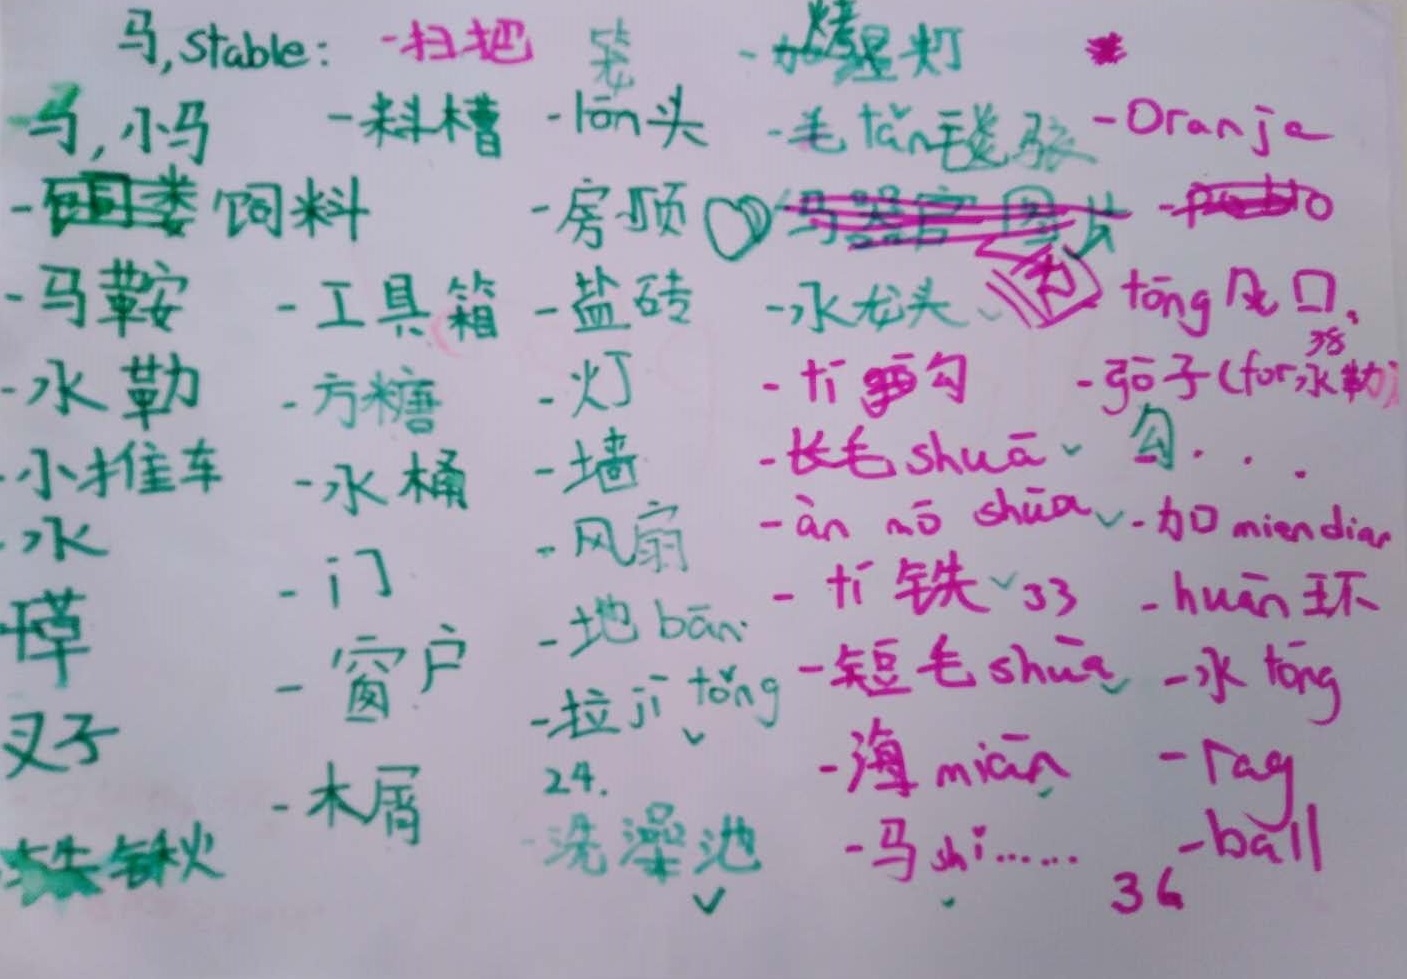 马,stable:
-扫把
笼
-加
灯
马,小马
-料槽
-lōn头
-毛 tǎn毛毯
-Oranja
饲料
-房顶
-马器官 图片
-马鞍
-工具箱
-盐砖
-水龙头
tōng风口.
-水勒
-方糖
-灯
-tí 勾
38
子(for水勒)
勾...
-小推车
-水桶
-墙
-长毛shuā
-水
-门
-风扇
-àn mō shūa
-加miendian
草
-窗户
-地bān.
-tí 铁 33
-huān环
叉子
-拉jī tǒng
-短毛shūa
-水tōng
-木屑
24.
-海miān
-rag
锹
-洗澡池
-马shǐ......
-ball
36